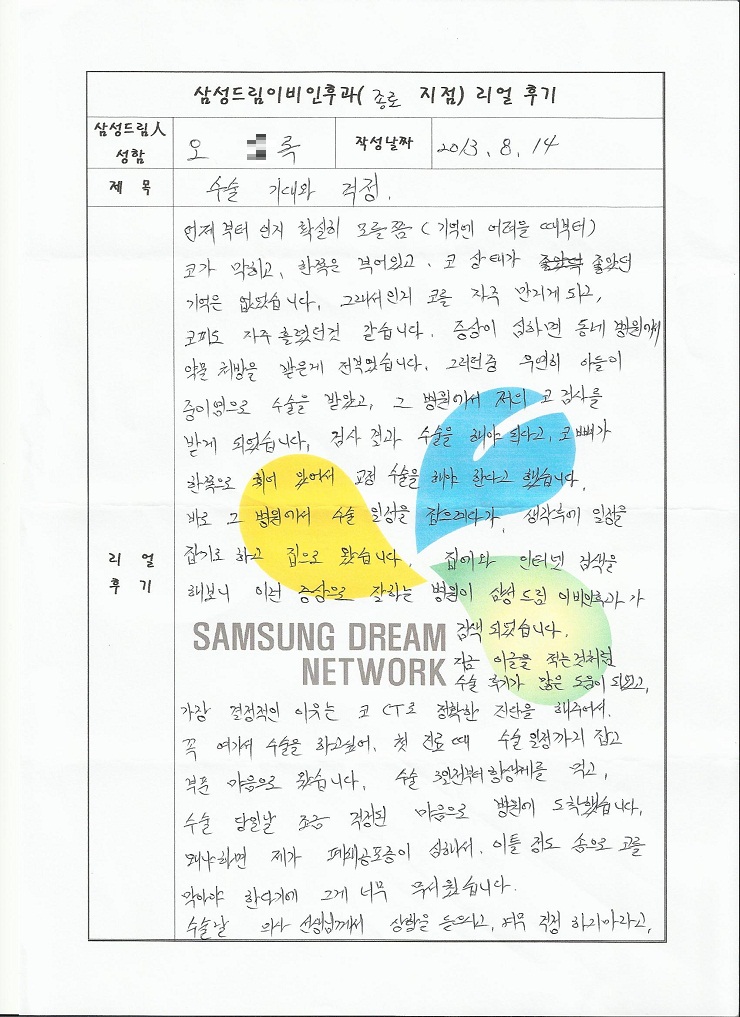 삼성드림이비인후과( 종로 지점) 리얼 후기
삼성드림人 성함
오 록
작성날짜
2013. 8. 14
제 목
수술 기대와 걱정.
리 얼 후 기
언제부터 인지 확실히 모를쯤 (기억엔 어려울 때부터)
코가 막히고, 한쪽은 부어있고, 코 상태가 좋았던 좋았던
기억은 없었습니다. 그래서인지 코를 자주 만지게 되고,
코피도 자주 흘렸던것 같습니다. 증상이 심하면 동네 병원에서
약물 처방을 받은게 전부였습니다. 그러던중 우연히 아들이
중이염으로 수술을 받았고, 그 병원에서 저의 코 검사를
받게 되었습니다. 검사 결과 수술을 해야 된다고, 코뼈가
한쪽으로 휘어 있어서 교정 수술을 해야 한다고 했습니다.
바로 그 병원에서 수술 일정을 잡으려다가, 생각후에 일정을
잡기로 하고 집으로 왔습니다. 집에와 인터넷 검색을
해보니 이런 증상으로 잘하는 병원이 삼성드림 이비인후과가
검색 되었습니다.
SAMSUNG DREAM
NETWORK
지금 이글을 적는것처럼
수술 후기가 많은 도움이 되었고,
가장 결정적인 이유는 코 CT로 정확한 진단을 해주어서.
꼭 여기서 수술을 하고싶어, 첫 진료 때 수술 일정까지 잡고
부푼 마음으로 왔습니다. 수술 3일전부터 항생제를 먹고,
수술 당일날 조금 걱정된 마음으로 병원에 도착했습니다.
왜냐하면 제가 폐쇄공포증이 심해서. 이틀 정도 솜으로 코를
막아야 한다기에 그게 너무 무서웠습니다.
수술날 의사 선생님께서 상황을 들으시고, 너무 걱정 하지마라고,